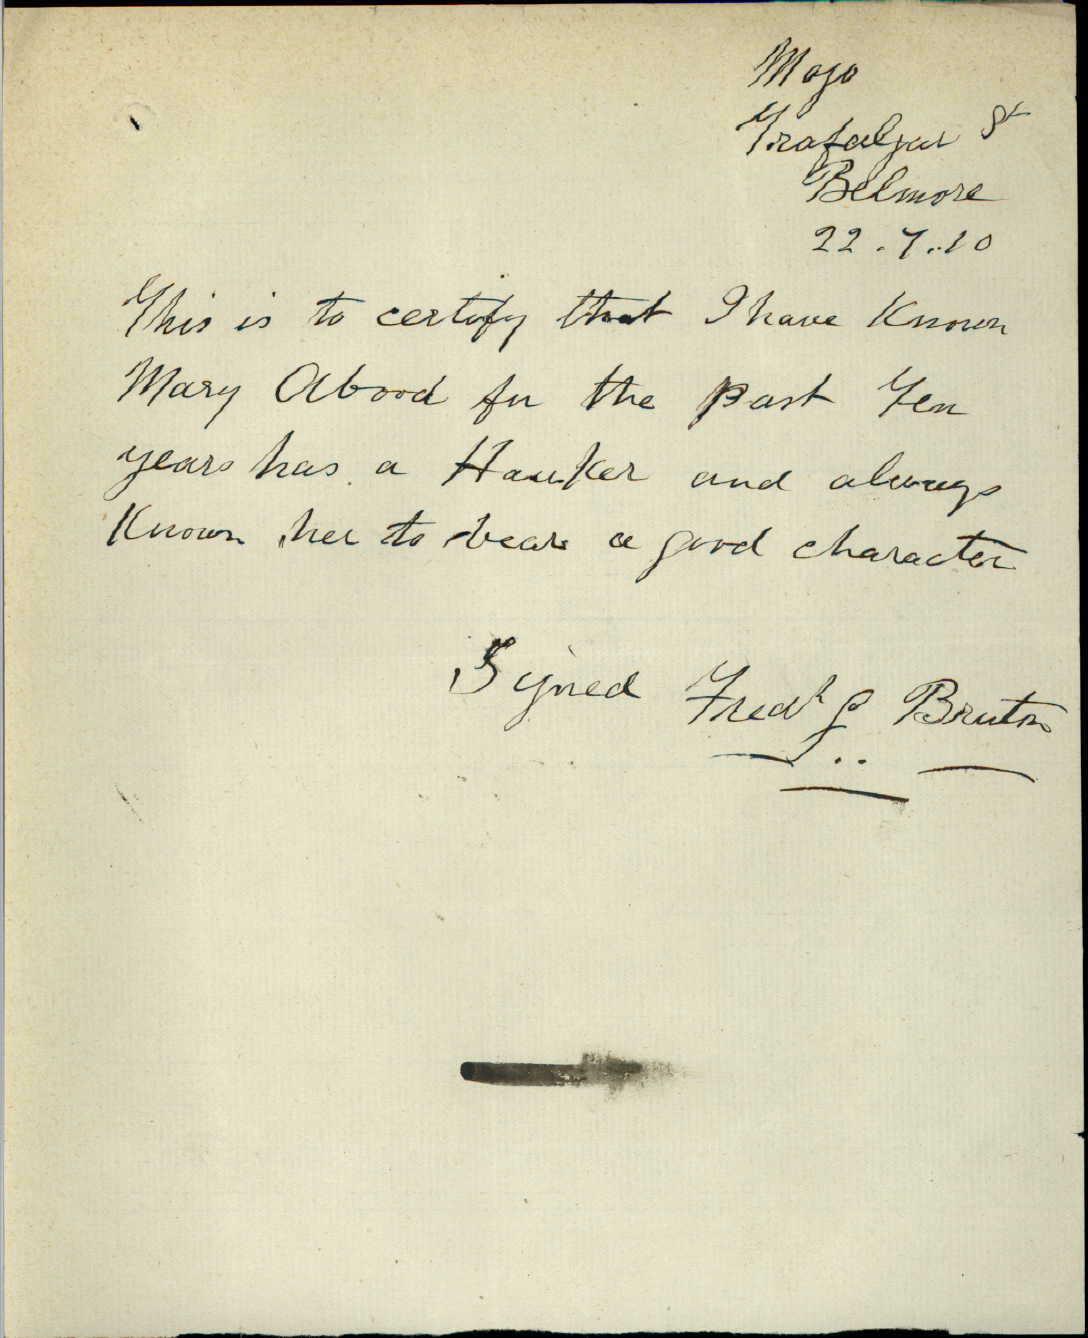 Mojo
Trafalgar St
Belmore
22.7.10
This is to certify that I have Known
Mary Abood for the Past Ten
years has a Hawker and always
Known her to bear a good character
Signed Fredk G Bruton